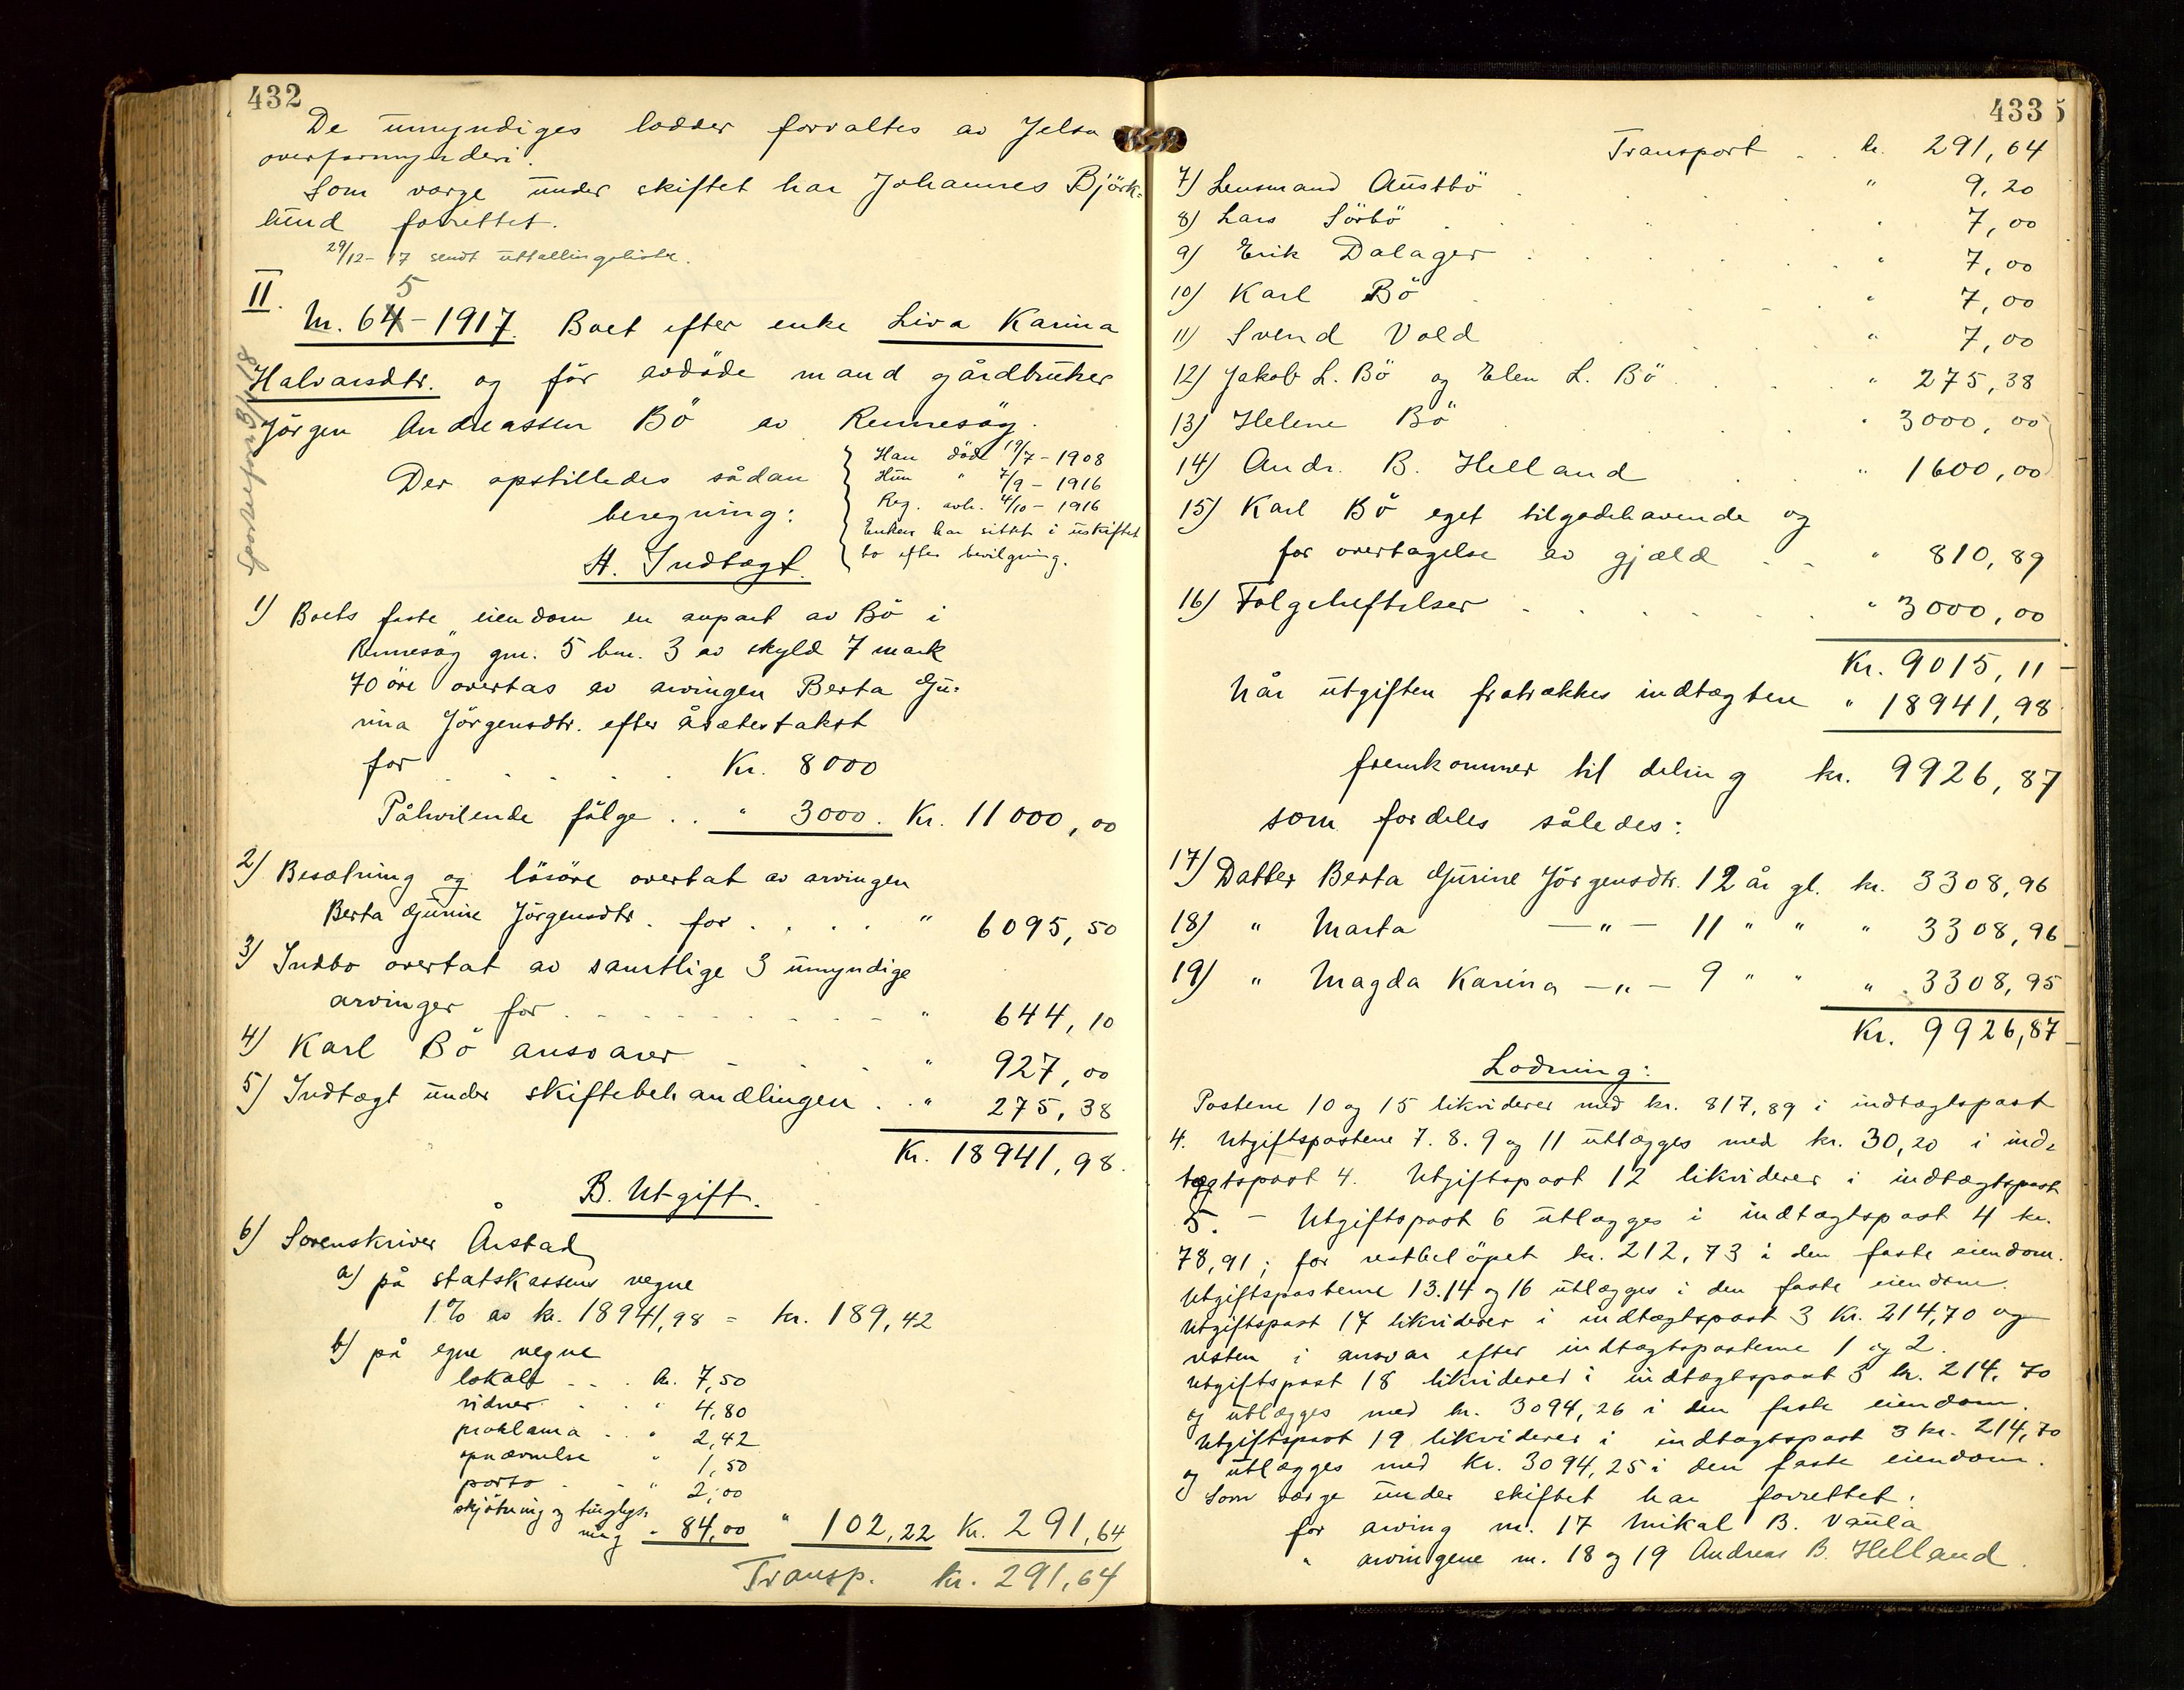 432
De umyndiges lodder forvaltes av Jelsa
overformynderi.
Som verge under skiftet har Johannes Björk-
lund forrettet.
29/12-17 sendt uttallingsliste.
II.
5
Nr. 64-1917. Boet efter enke Liva Karina
Halvarsdtr. og för avdöde mand gårdbruker
Jörgen Andreassen Bö av Rennesöy.
Der opstilledes sådan
beregning:
Han döde 19/7-1908
Hun " 7/9-1916
Reg. avh. 4/10-1916
Enken har sittet i uskiftet
bo efter bevilgning.
A. Indtægt.
1) Boets faste eiendom en anpart av Bö i
Rennesöy gnr. 5 bnr. 3 av skyld 7 mark
70 öre overtas av arvingen Berta Gu-
rina Jörgensdtr. efter åsætestakst
for . . . . . Kr. 8000
Påhvilende fölge . . " 3000. Kr. 11000,00
2) Besætning og lösöre overtat av arvingen
Berta Gurine Jörgensdtr. for . . . . " 6095,50
3) Indbo overtat av samtlige 3 umyndige
arvinger for . . . . . . . . . " 644,10
4) Karl Bö ansvarer . . . " 927,00
5) Indtægt under skiftebehandlingen . . " 275,38
Kr. 18941,98.
B. Utgift.
6) Sorenskriver Årstad
a) på statskassens vegne
1% av kr. 18941,98 = kr. 189,42
b) på egne vegne
lokale . . . kr. 7,50
vidner . . . " 4,80
proklama . . " 2,42
opnævnelse " 1,50
porto . . . " 2,00
skjötning og tinglys-
ning " 84,00 " 102,22 Kr. 291,64
Transp. kr. 291,64
433
Transport . . kr. 291,64
7) Lensmand Austbö . . . " 9,20
8) Lars Sörbö . . . " 7,00
9) Erik Dalager . . . " 7,00
10) Karl Bö . . . " 7,00
11) Svend Vold . . . " 7,00
12) Jakob L. Bö og Elen L. Bö . . . " 275,38
13) Helene Bö . . . " 3000,00
14) Andr. B. Helland . . . " 1600,00
15) Karl Bö eget tilgodehavende og
for overtagelse av gjæld . . " 810,89
16) Fölgeheftelser . . . " 3000,00
Kr. 9015,11
Når utgiften fratrækkes indtægten " 18941,98
fremkommer til deling kr. 9926,87
som fordeles således:
17) Datter Berta Gurine Jörgensdtr. 12 år gl. kr. 3308,96
18) " Marta —"— 11 " " " 3308,96
19) " Magda Karina —"— 9 " " " 3308,95
Kr. 9926,87
Lodning:
Postene 10 og 15 likviderer med kr. 817,89 i indtægtspost
4. Utgiftspostene 7. 8. 9 og 11 utlægges med kr. 30,20 i ind-
tægtspost 4. Utgiftspost 12 likviderer i indtægtspost
5. — Utgiftspost 6 utlægges i indtægtspost 4 kr.
78,91; for restbelöpet kr. 212,73 i den faste eiendom.
Utgiftspostene 13.14 og 16 utlægges i den faste eiendom.
Utgiftspost 17 likviderer i indtægtspost 3 Kr. 214,70 og
resten i ansvar efter indtægtspostene 1 og 2.
Utgiftspost 18 likviderer i indtægtspost 3 kr. 214,70
og utlægges med kr. 3094,26 i den faste eiendom.
Utgiftspost 19 likviderer i indtægtspost 3 kr. 214,70
og utlægges med Kr. 3094,25 i den faste eiendom.
Som verge under skiftet har forrettet:
for arving nr. 17 Mikal B. Vaula
" arvingene nr. 18 og 19 Andreas B. Helland.